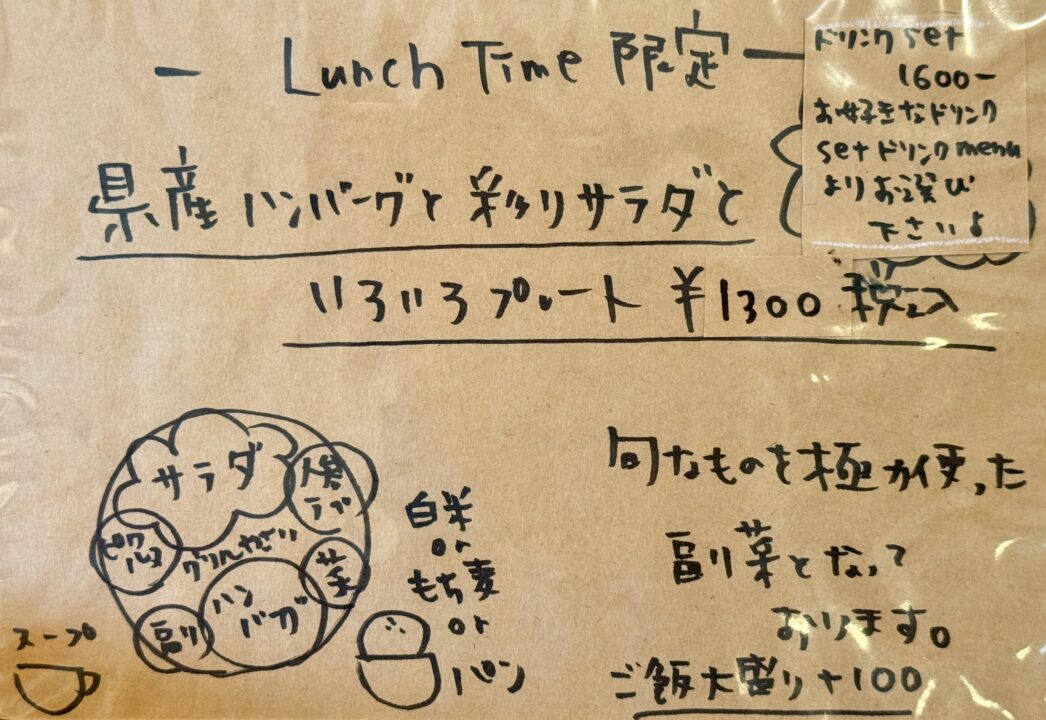 - Lunch Time 限定 -
ドリンクset
1600-
お好きなドリンク
setドリンクmenu
よりお選び
下さいよ
県産ハンバーグと彩りサラダと
いろいろプレート ¥1300 税込
サラダ
ピクルス
グリルやさい
菜
ハン
バーグ
副
スープ
白米
or
もち麦
or
パン
旬なものを極力使った
副菜となって
おります。
ご飯大盛り+100